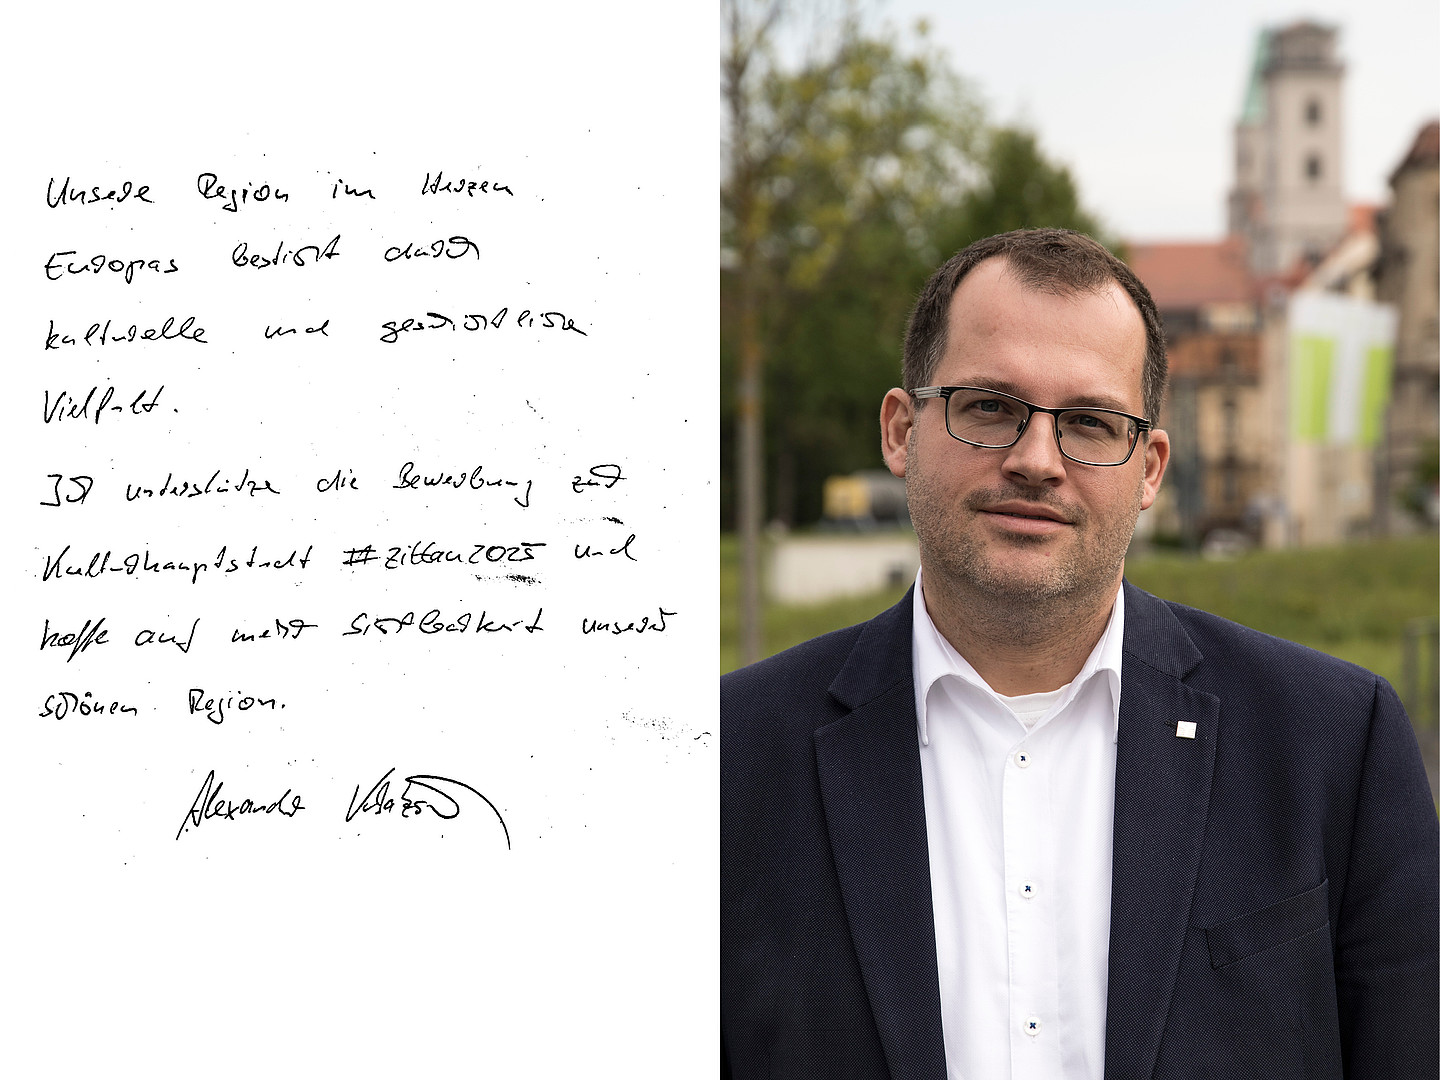 Unsere Region im Herzen
Europas besticht durch
kulturelle und geschichtliche
Vielfalt.
Ich unterstütze die Bewerbung zur
Kulturhauptstadt #zittau2025 und
hoffe auf mehr Sichtbarkeit unserer
schönen Region.
Alexander